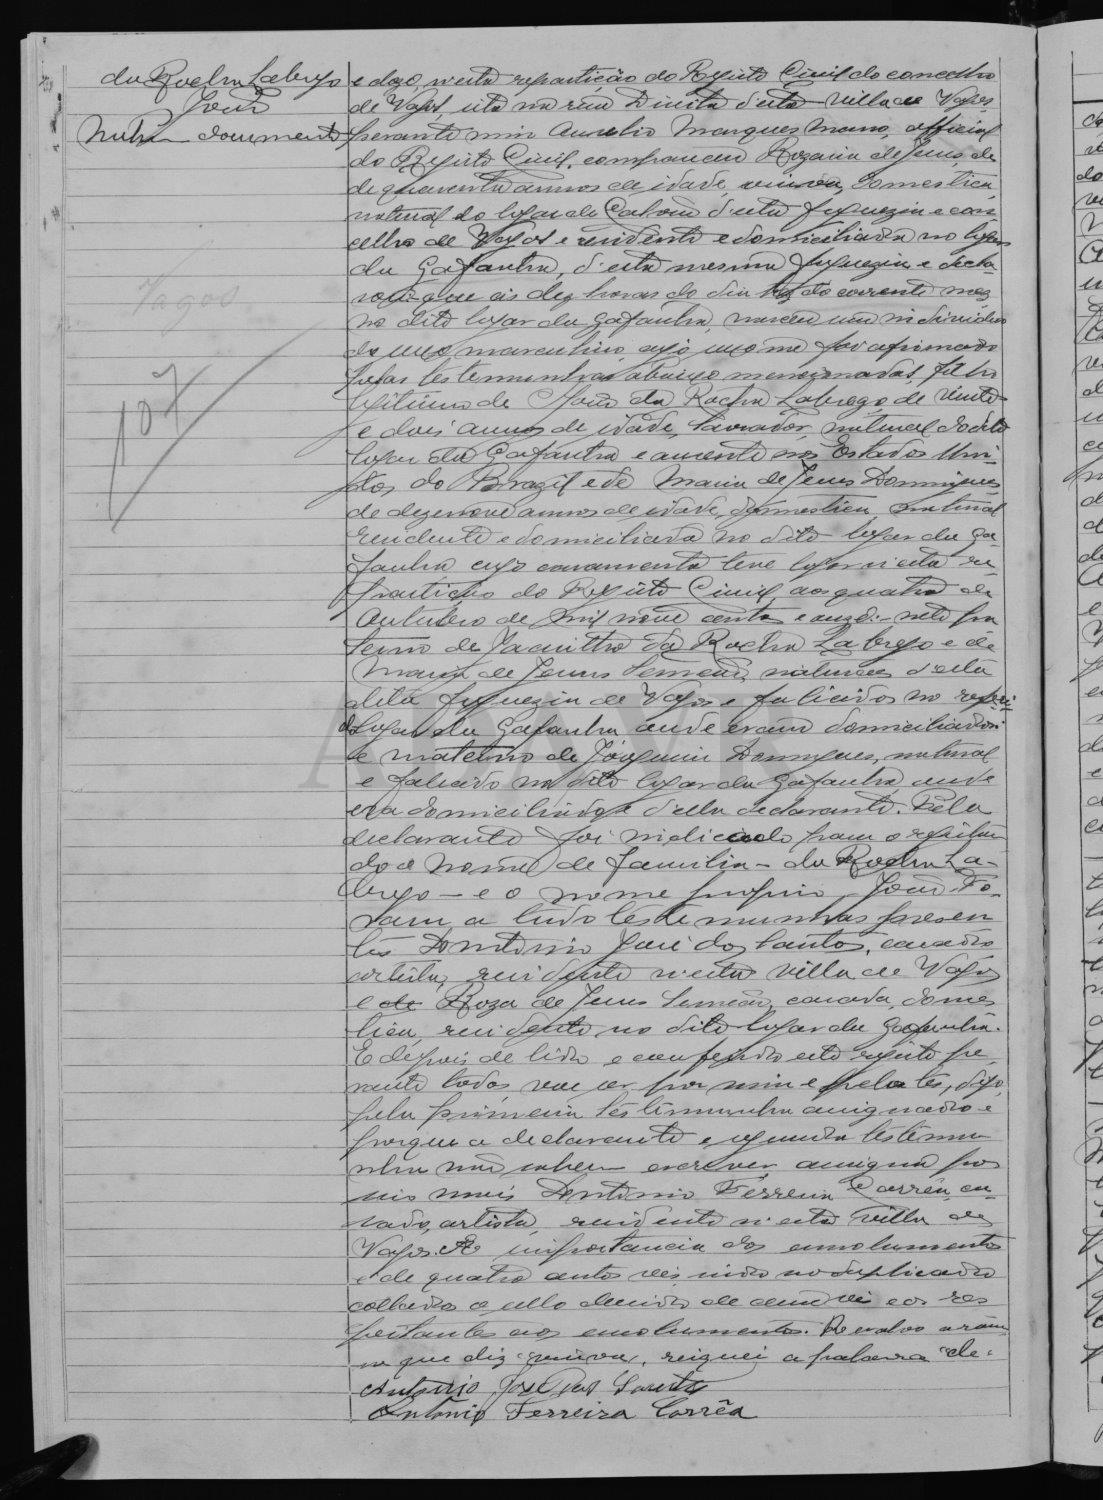 da Rocha Labrego
João
Nutri documento
Vagos
107
e doze, n'esta repartição do Registo Civil do concelho
de Vagos, sita na rua Direita d'esta villa de Vagos
perante mim Aurelio Marques Mano, official
do Registo Civil, compareceu Rozaria de Jesus, de
de quarenta annos de idade, viuva, domestica
natural do logar de d'esta freguezia e con
celho de Vagos e residente e domiciliada no logar
da Gafanha, d'esta mesma freguezia e decla
rou que ás dez horas do dia tres do corrente mez
no dito logar da Gafanha, nasceu um individuo
do sexo masculino, cujo sexo me foi afirmado
pelas testemunhas abaixo mencionadas, filho
legitimo de João da Rocha Labrego, de vinte
e dois annos de idade, lavrador, natural do dito
logar da Gafanha e ausente nos Estados Uni-
dos do Brazil e de Maria de Jesus Domingues
de dezenove annos de idade, domestica, natural
residente e domiciliada no dito logar da Ga-
fanha cujo casamento teve logar n'esta re
partição do Registo Civil aos quatro de
Outubro de mil nove centos e onze: neto pa
terno de Jacintho da Rocha Labrego e de
Maria de Jesus Semeão, naturaes d'esta
dita freguezia de Vagos e falecidos no referi
do logar da Gafanha onde eram domiciliados
e materno de Joaquim Domingues, natural
e falecido no dito logar da Gafanha, onde
era domiciliado e d'ella declarante. Pela
declarante foi indicado para o registan
do o nome de familia - da Rocha La-
brego - e o nome proprio João. Fo-
ram a tudo testemunhas presen
tes Antonio José dos Santos, casado
artista, residente n'esta villa de Vagos
e de Roza de Jesus Semeão, casada, domes
tica, residente no dito logar da Gafanha.
E depois de lido e conferido este registo pe
rante todos, vae ser por mim e pelas tes, digo
pela primeira testemunha assignado e
porque a declarante e segunda testemu
nha não sabem escrever, assigna por
mais Antonio Ferreira Corrêa, ca-
sado, artista, residente n'esta villa de
Vagos. A importancia dos emolumentos
é de quatro centos réis, sendo no duplicado
collados o sello devido de cem réis e os res
peitantes aos emolumentos. Resalvo a rasu
ra que diz "viuva", risquei a palavra "de".
Antonio José dos Santos
Antonio Ferreira Corrêa